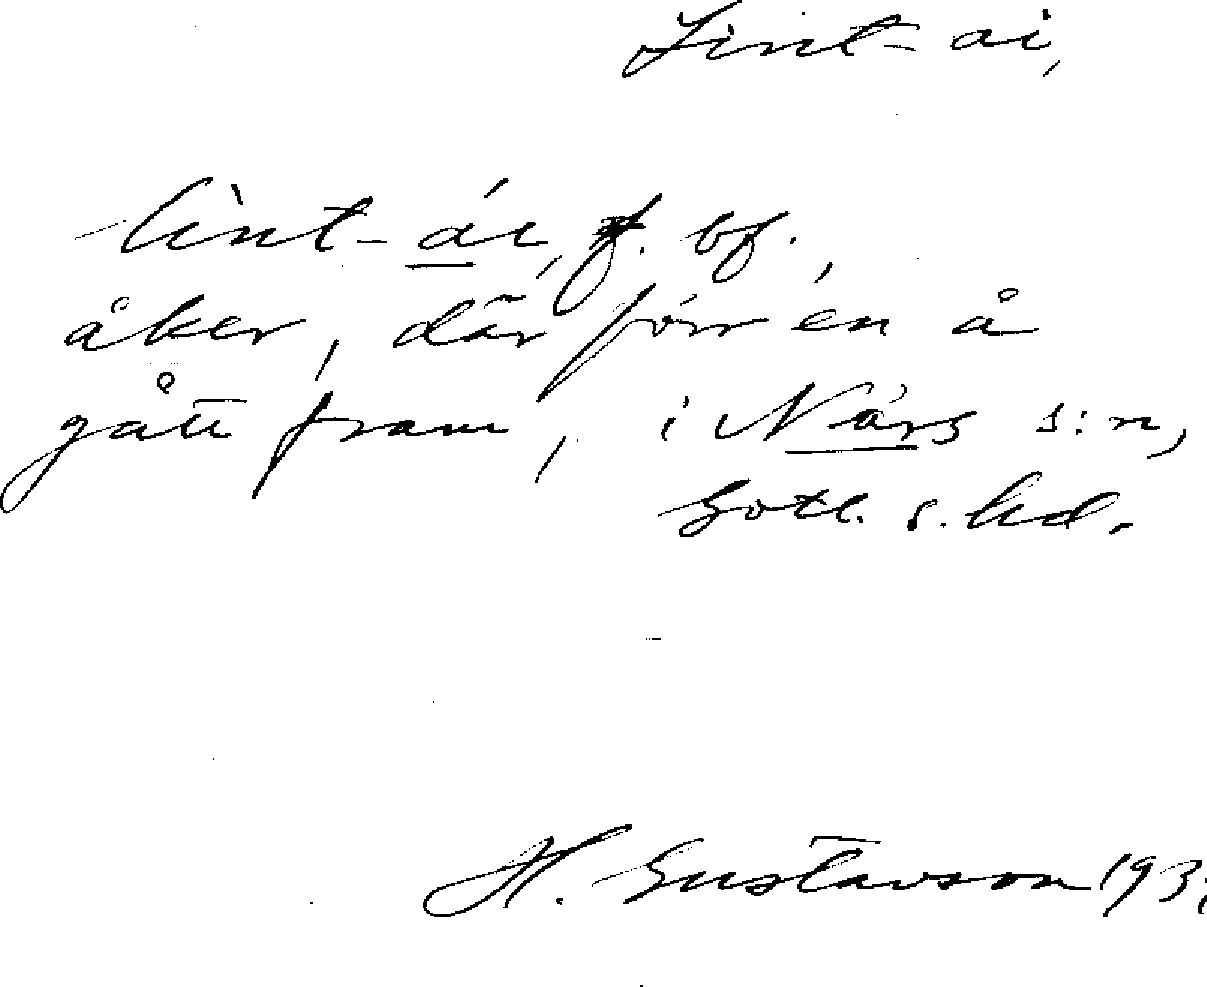 Lint-ai,
lìnt-ái, f. bf.
åker, där förr en å
gått fram, i När s s:n,
Gotl. s. hd.
H. Gustavson 193